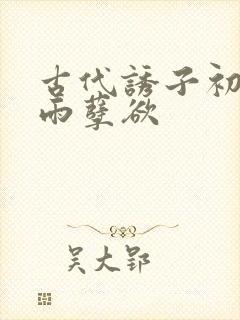 古代誘子初
雨孽欲
吴大郢